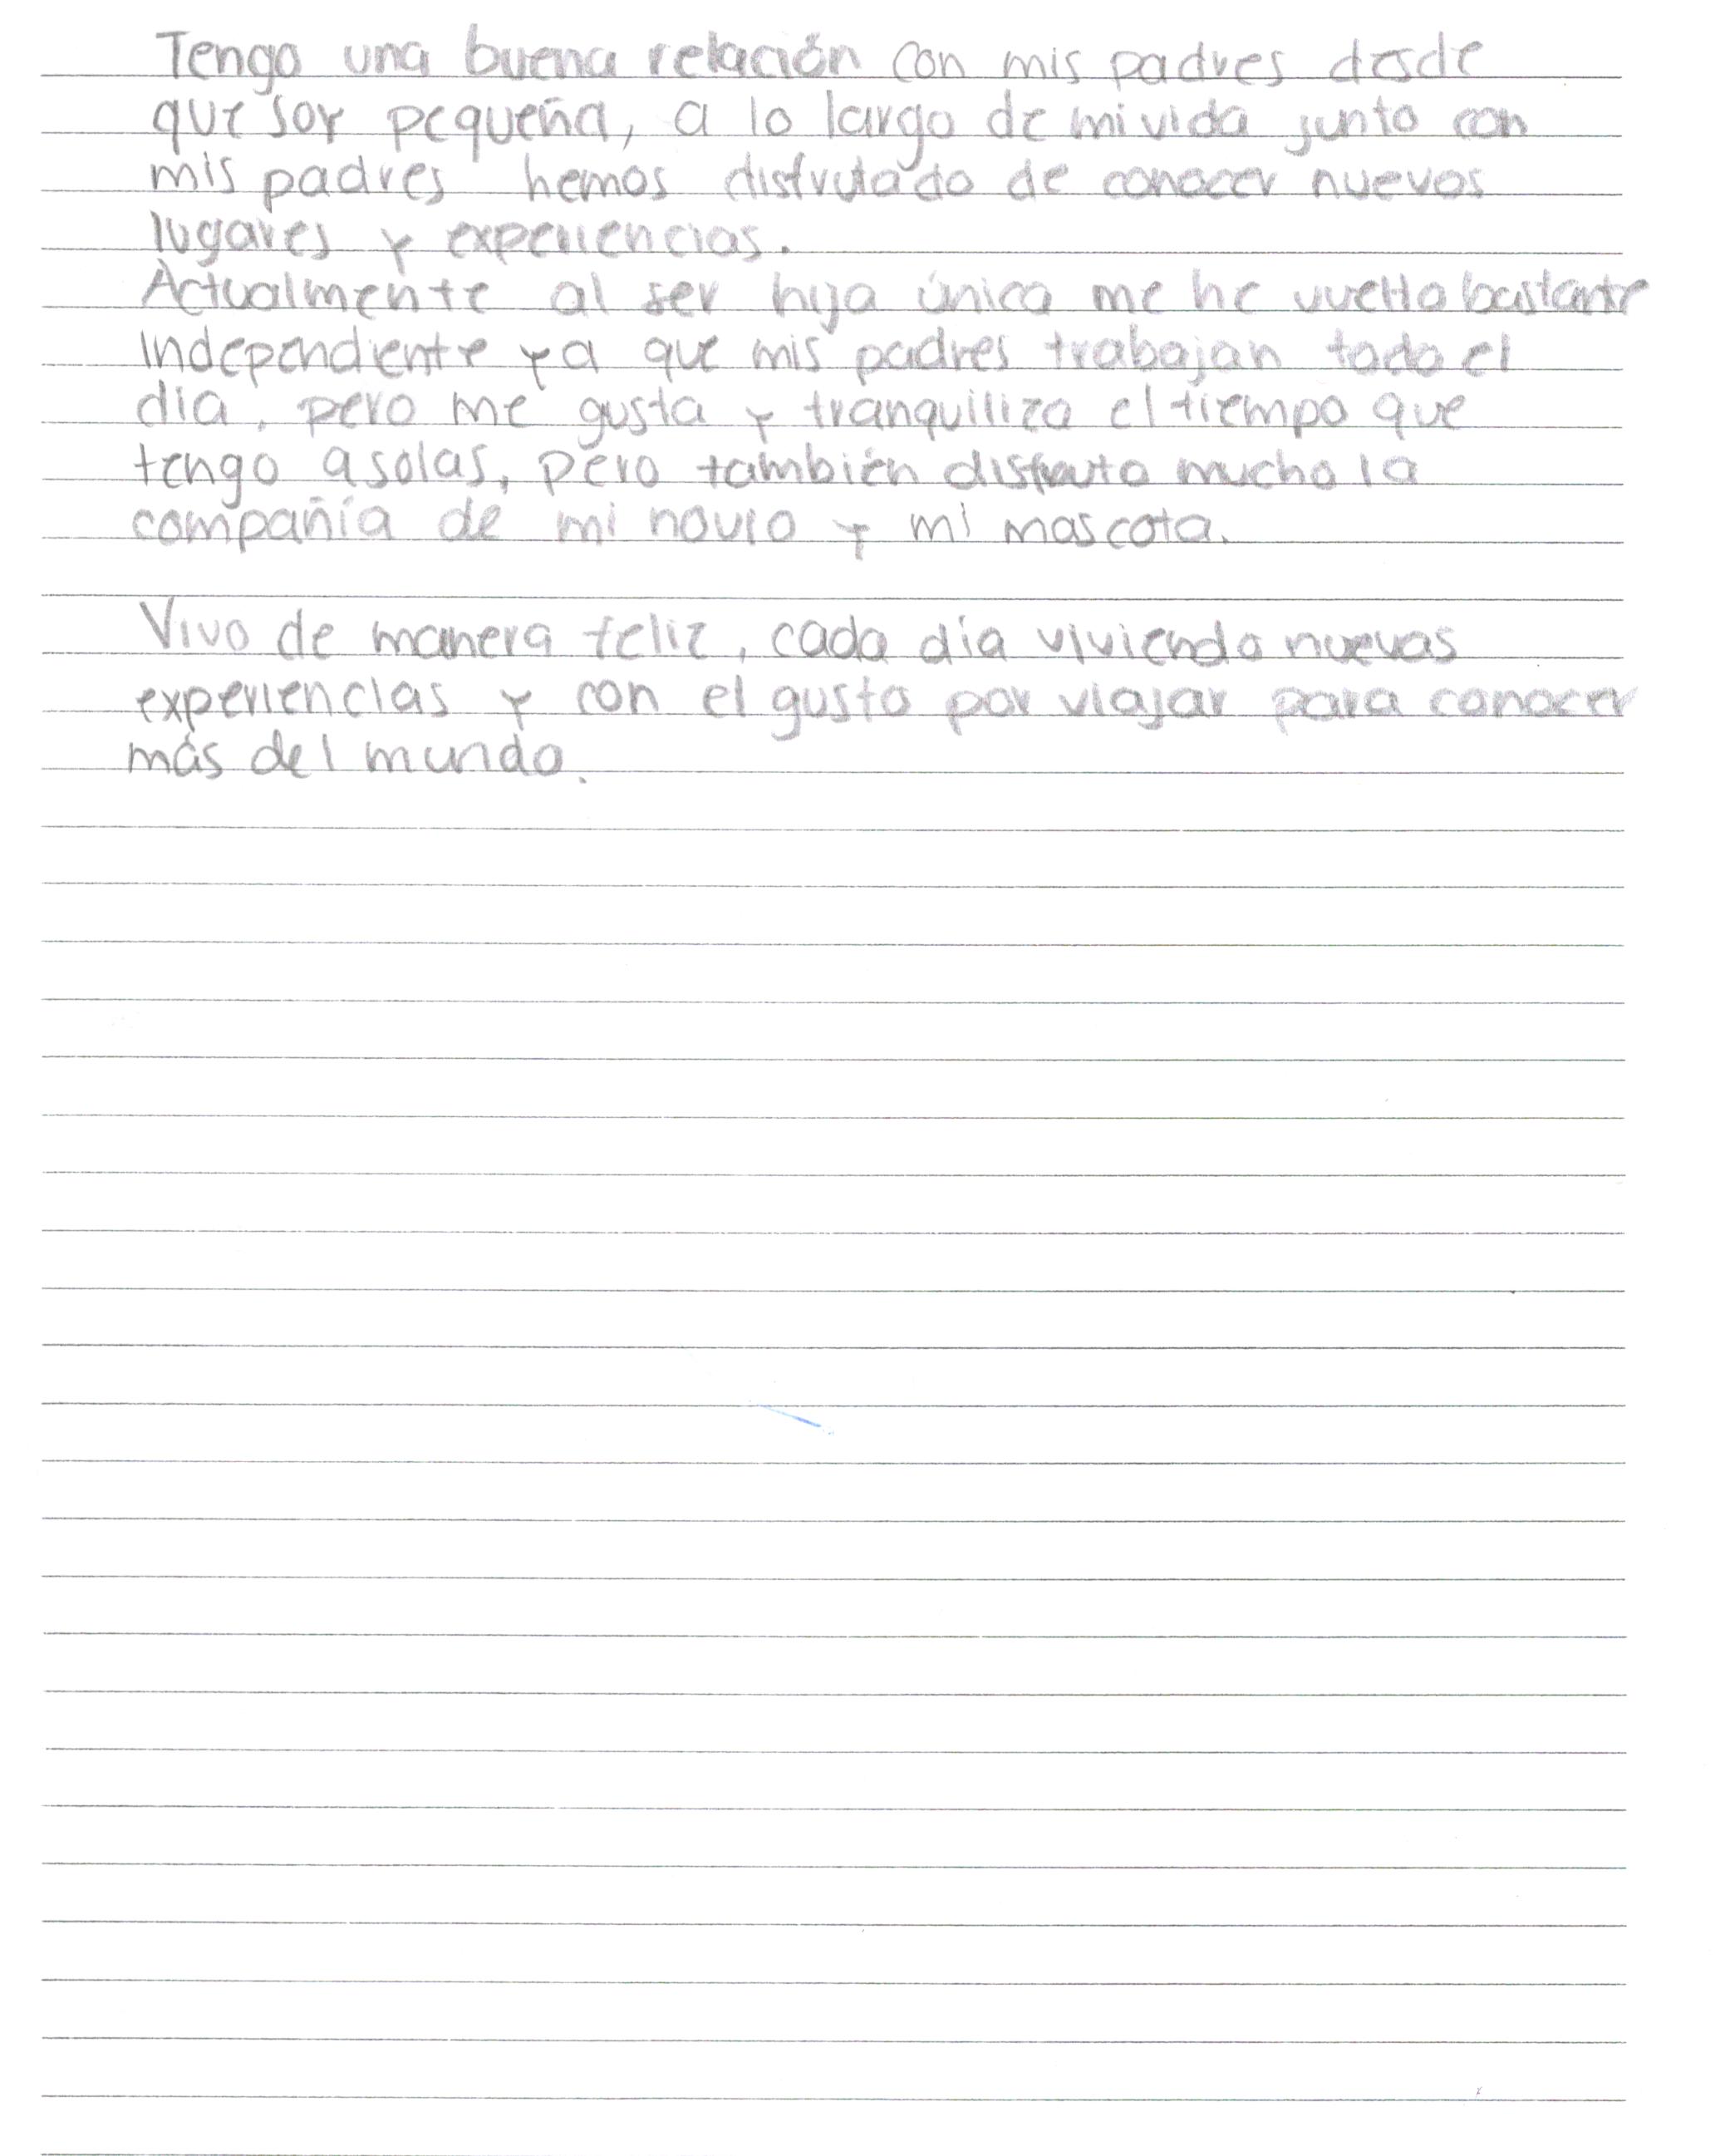 Tengo una buena relación con mis padres desde
que soy pequeña, a lo largo de mi vida junto con
mis padres hemos disfrutado de conocer nuevos
lugares y experiencias.
Actualmente al ser hija única me he vuelto bastante
independiente ya que mis padres trabajan todo el
día, pero me gusta y tranquiliza el tiempo que
tengo a solas, pero también disfruto mucho la
compañía de mi novio y mi mascota.
Vivo de manera feliz, cada día viviendo nuevas
experiencias y con el gusto por viajar para conocer
más del mundo.